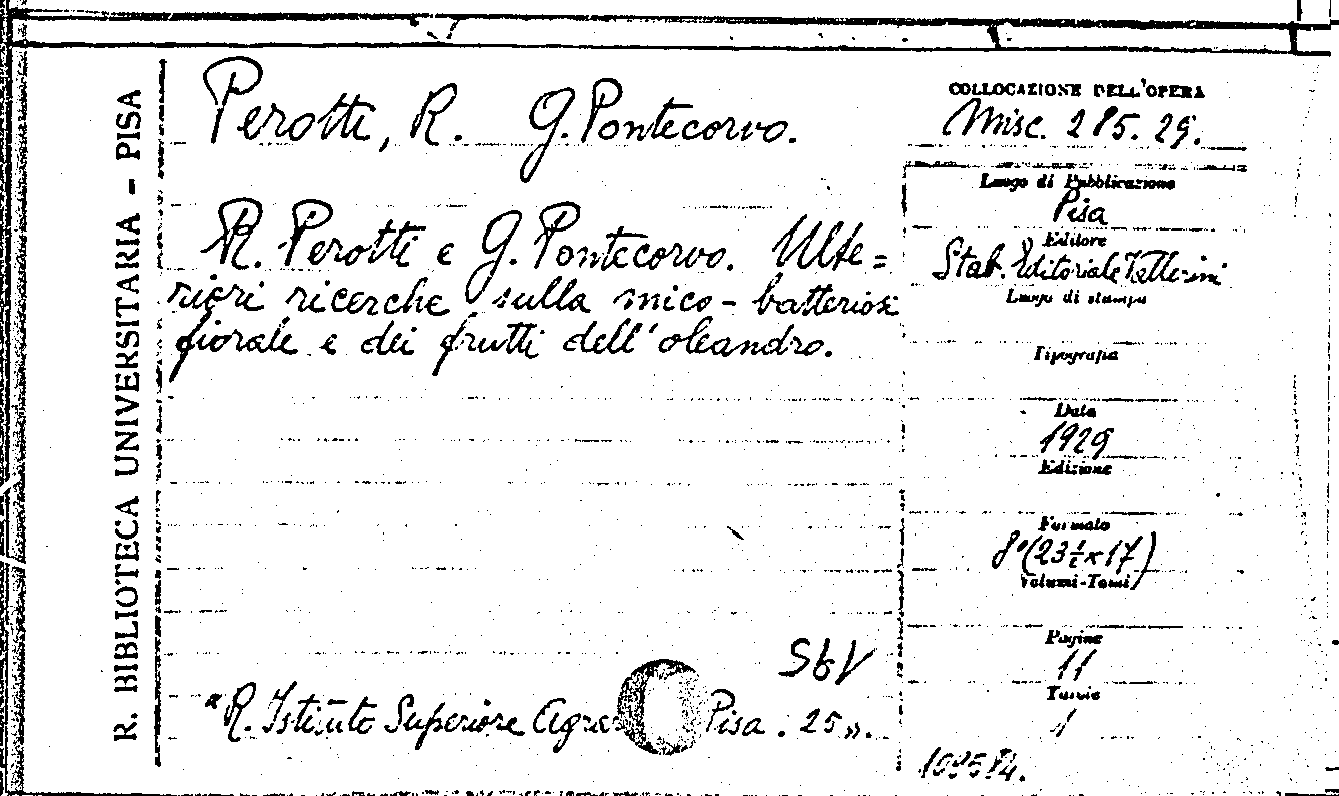 R. BIBLIOTECA UNIVERSITARIA - PISA
Perotti, R. G. Pontecorvo.
R. Perotti e G. Pontecorvo. Ulte=
riori ricerche sulla mico-batteriosi
fiorale e dei frutti dell'oleandro.
SBV
"R. Istituto Superiore Agra Pisa. 25".
COLLOCAZIONE DELL'OPERA
Misc. 285. 29.
Luogo di Pubblicazione
Pisa
Editore
Stab. Editoriale Vallerini
Luogo di stampa
Tipografia
Data
1929
Edizione
Formato
8°(23½×17)
Volumi-Tomi
Pagine
11
Tavole
1